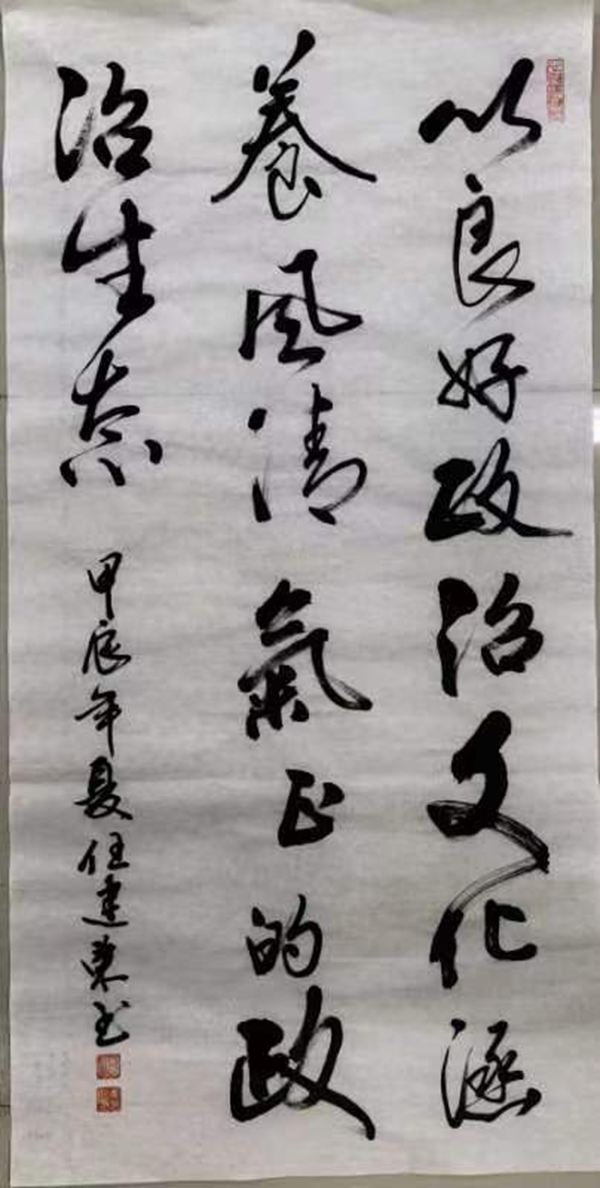 以良好政治文化涵
養风清氣正的政
治生态
甲辰年夏任建東书